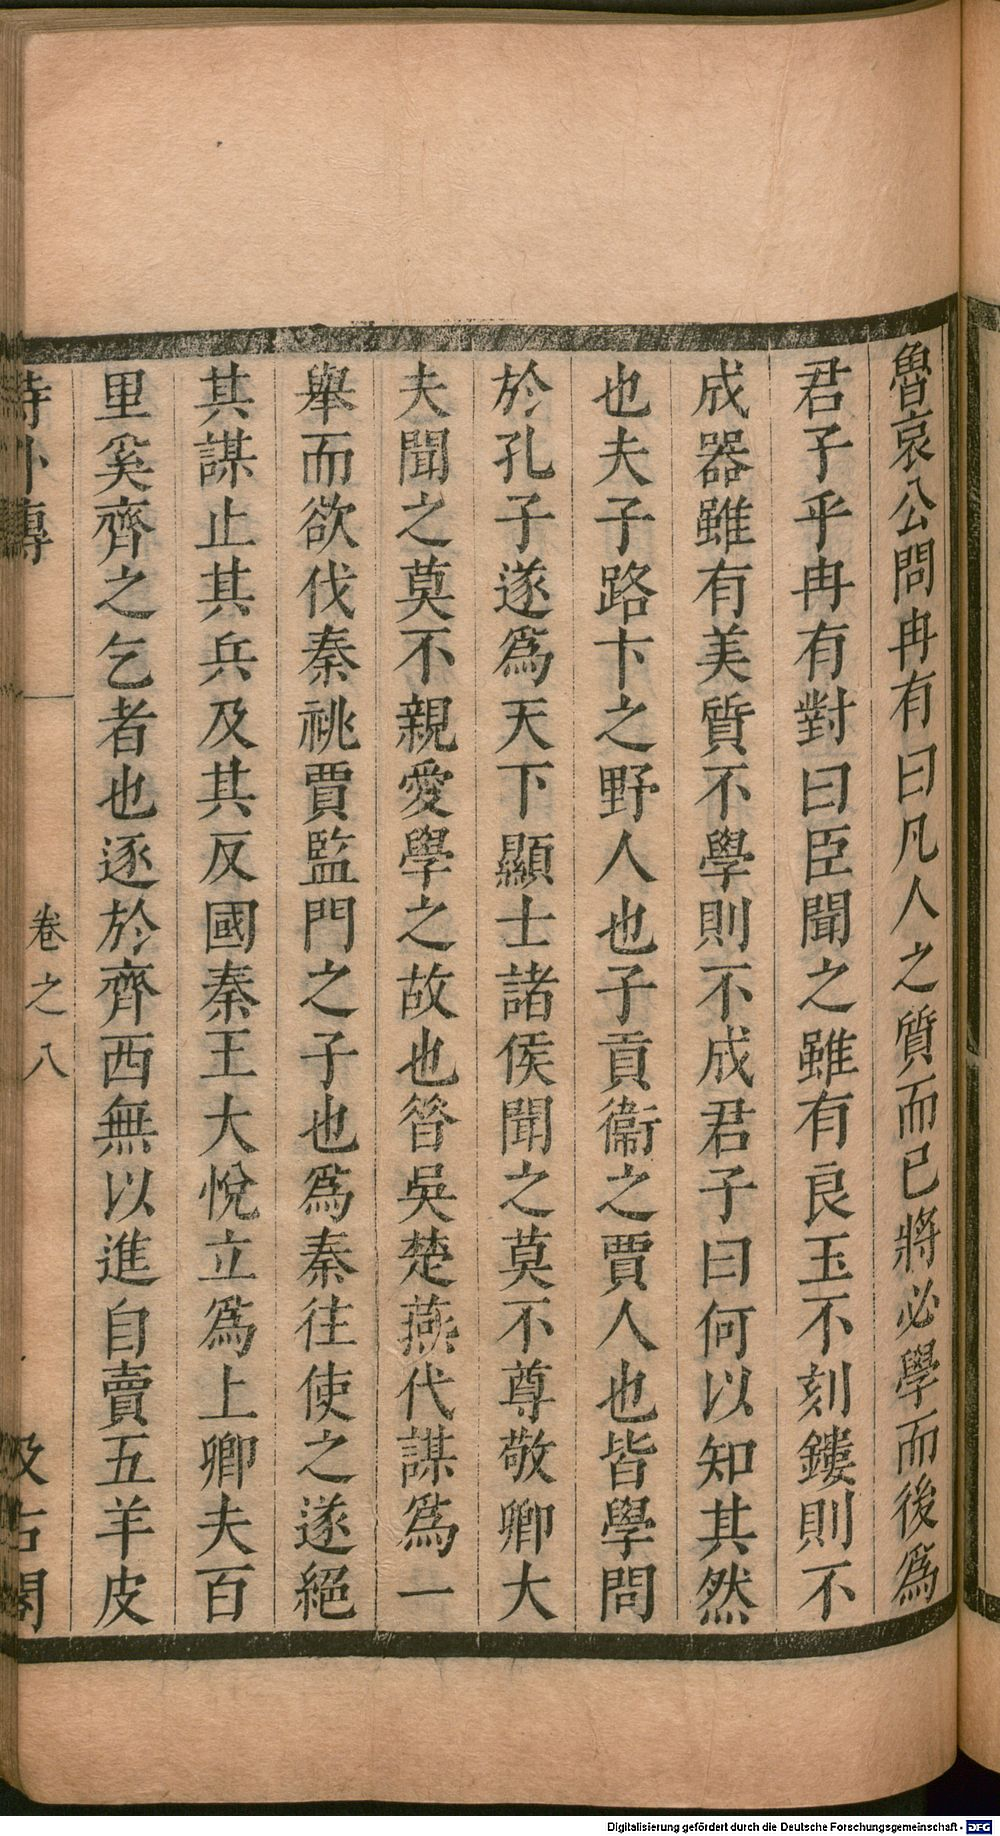 魯哀公問冉有曰凡人之質而已將必學而後為
君子乎冉有對曰臣聞之雖有良玉不刻鏤則不
成器雖有美質不學則不成君子曰何以知其然
也夫子路卞之野人也子貢衞之賈人也皆學問
於孔子遂為天下顯士諸侯聞之莫不尊敬卿大
夫聞之莫不親愛學之故也昝吳楚燕代謀為一
舉而欲伐秦祧賈監門之子也為秦往使之遂絕
其謀止其兵及其反國秦王大悅立為上卿夫百
里奚齊之乞者也逐於齊西無以進自賣五羊皮
詩外傳 卷之八 汲古閣
Digitalisierung gefördert durch die Deutsche Forschungsgemeinschaft - DFG